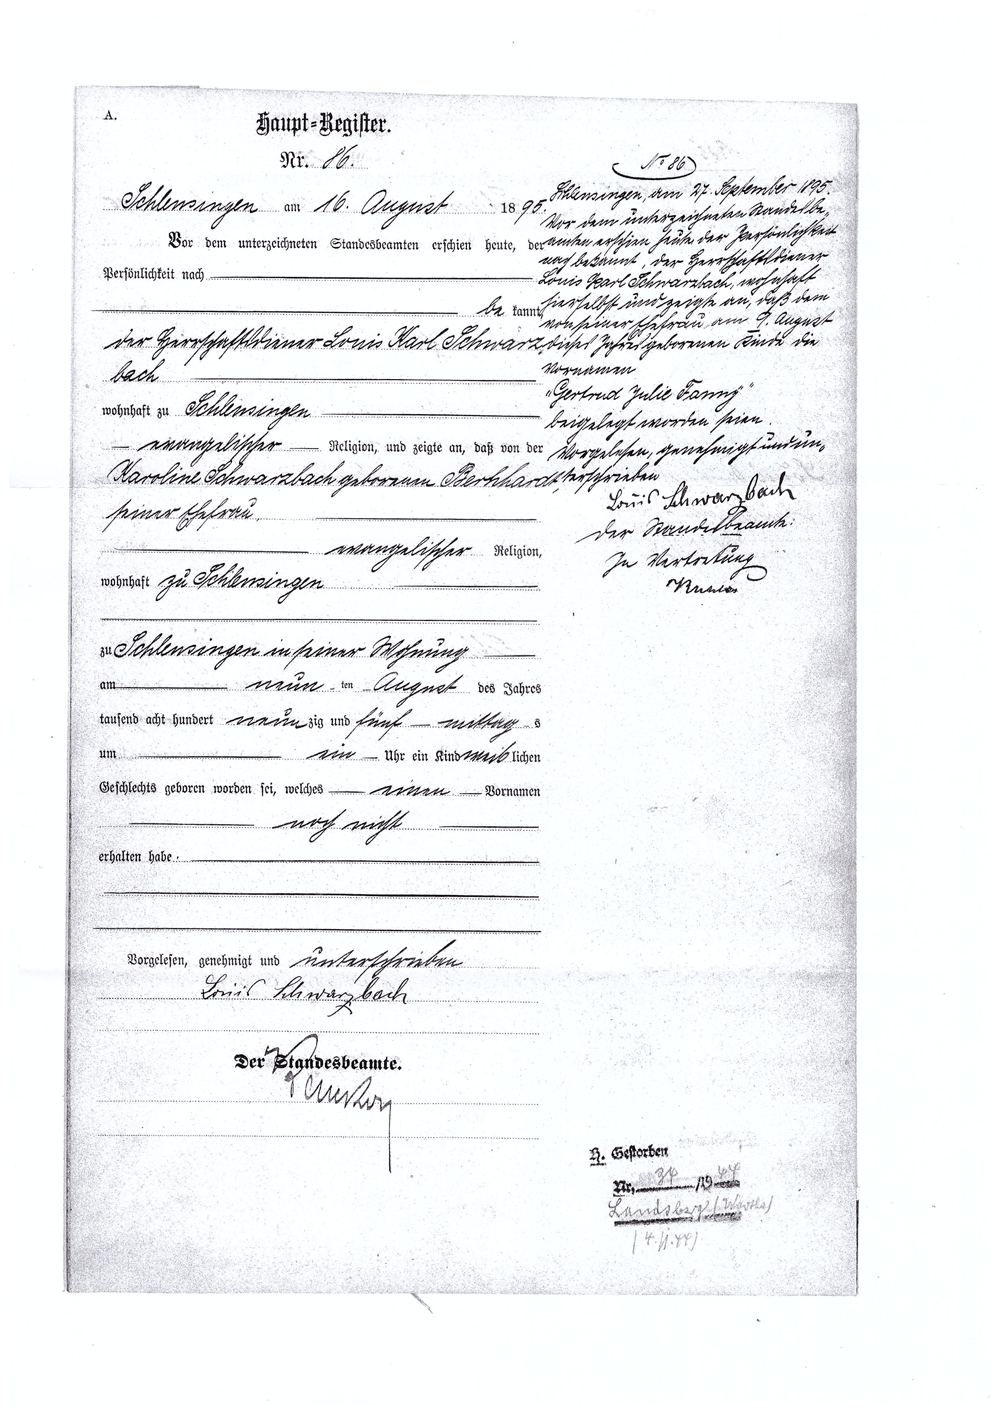 A.
Haupt=Register.
Nr. 86.
Schleusingen am 16. August 1895.
Vor dem unterzeichneten Standesbeamten erschien heute, der
Persönlichkeit nach
be kannt,
der Herrschaftsdiener Louis Karl Schwarz,
bach
wohnhaft zu Schleusingen
evangelischer Religion, und zeigte an, daß von der
Karoline Schwarzbach geborenen Bernhardt,
seiner Ehefrau,
evangelischer Religion,
wohnhaft zu Schleusingen
zu Schleusingen in seiner Wohnung
am neun ten August des Jahres
tausend acht hundert neun zig und fünf mittag s
um ein Uhr ein Kind weib lichen
Geschlechts geboren worden sei, welches einen Vornamen
noch nicht
erhalten habe.
Vorgelesen, genehmigt und unterschrieben
Louis Schwarzbach
Der Standesbeamte.
No 86
Schleusingen, am 27. September 1895.
Vor dem unterzeichneten Standesbe,
amten erschien heute der Persönlichkeit
nach bekannt, der Herrschaftsdiener
Louis Karl Schwarzbach, wohnhaft
hierselbst und zeigte an, daß dem
von seiner Ehefrau am 9. August
dieses Jahres geborenen Kinde die
Vornamen
"Gertrud Julie Fanny"
beigelegt worden seien.
Vorgelesen, genehmigt und un,
terschrieben
Louis Schwarzbach
Der Standesbeamte:
In Vertretung
H. Gestorben
Nr. 37 /1944
Landsberg (Warthe)
(4.1.44)